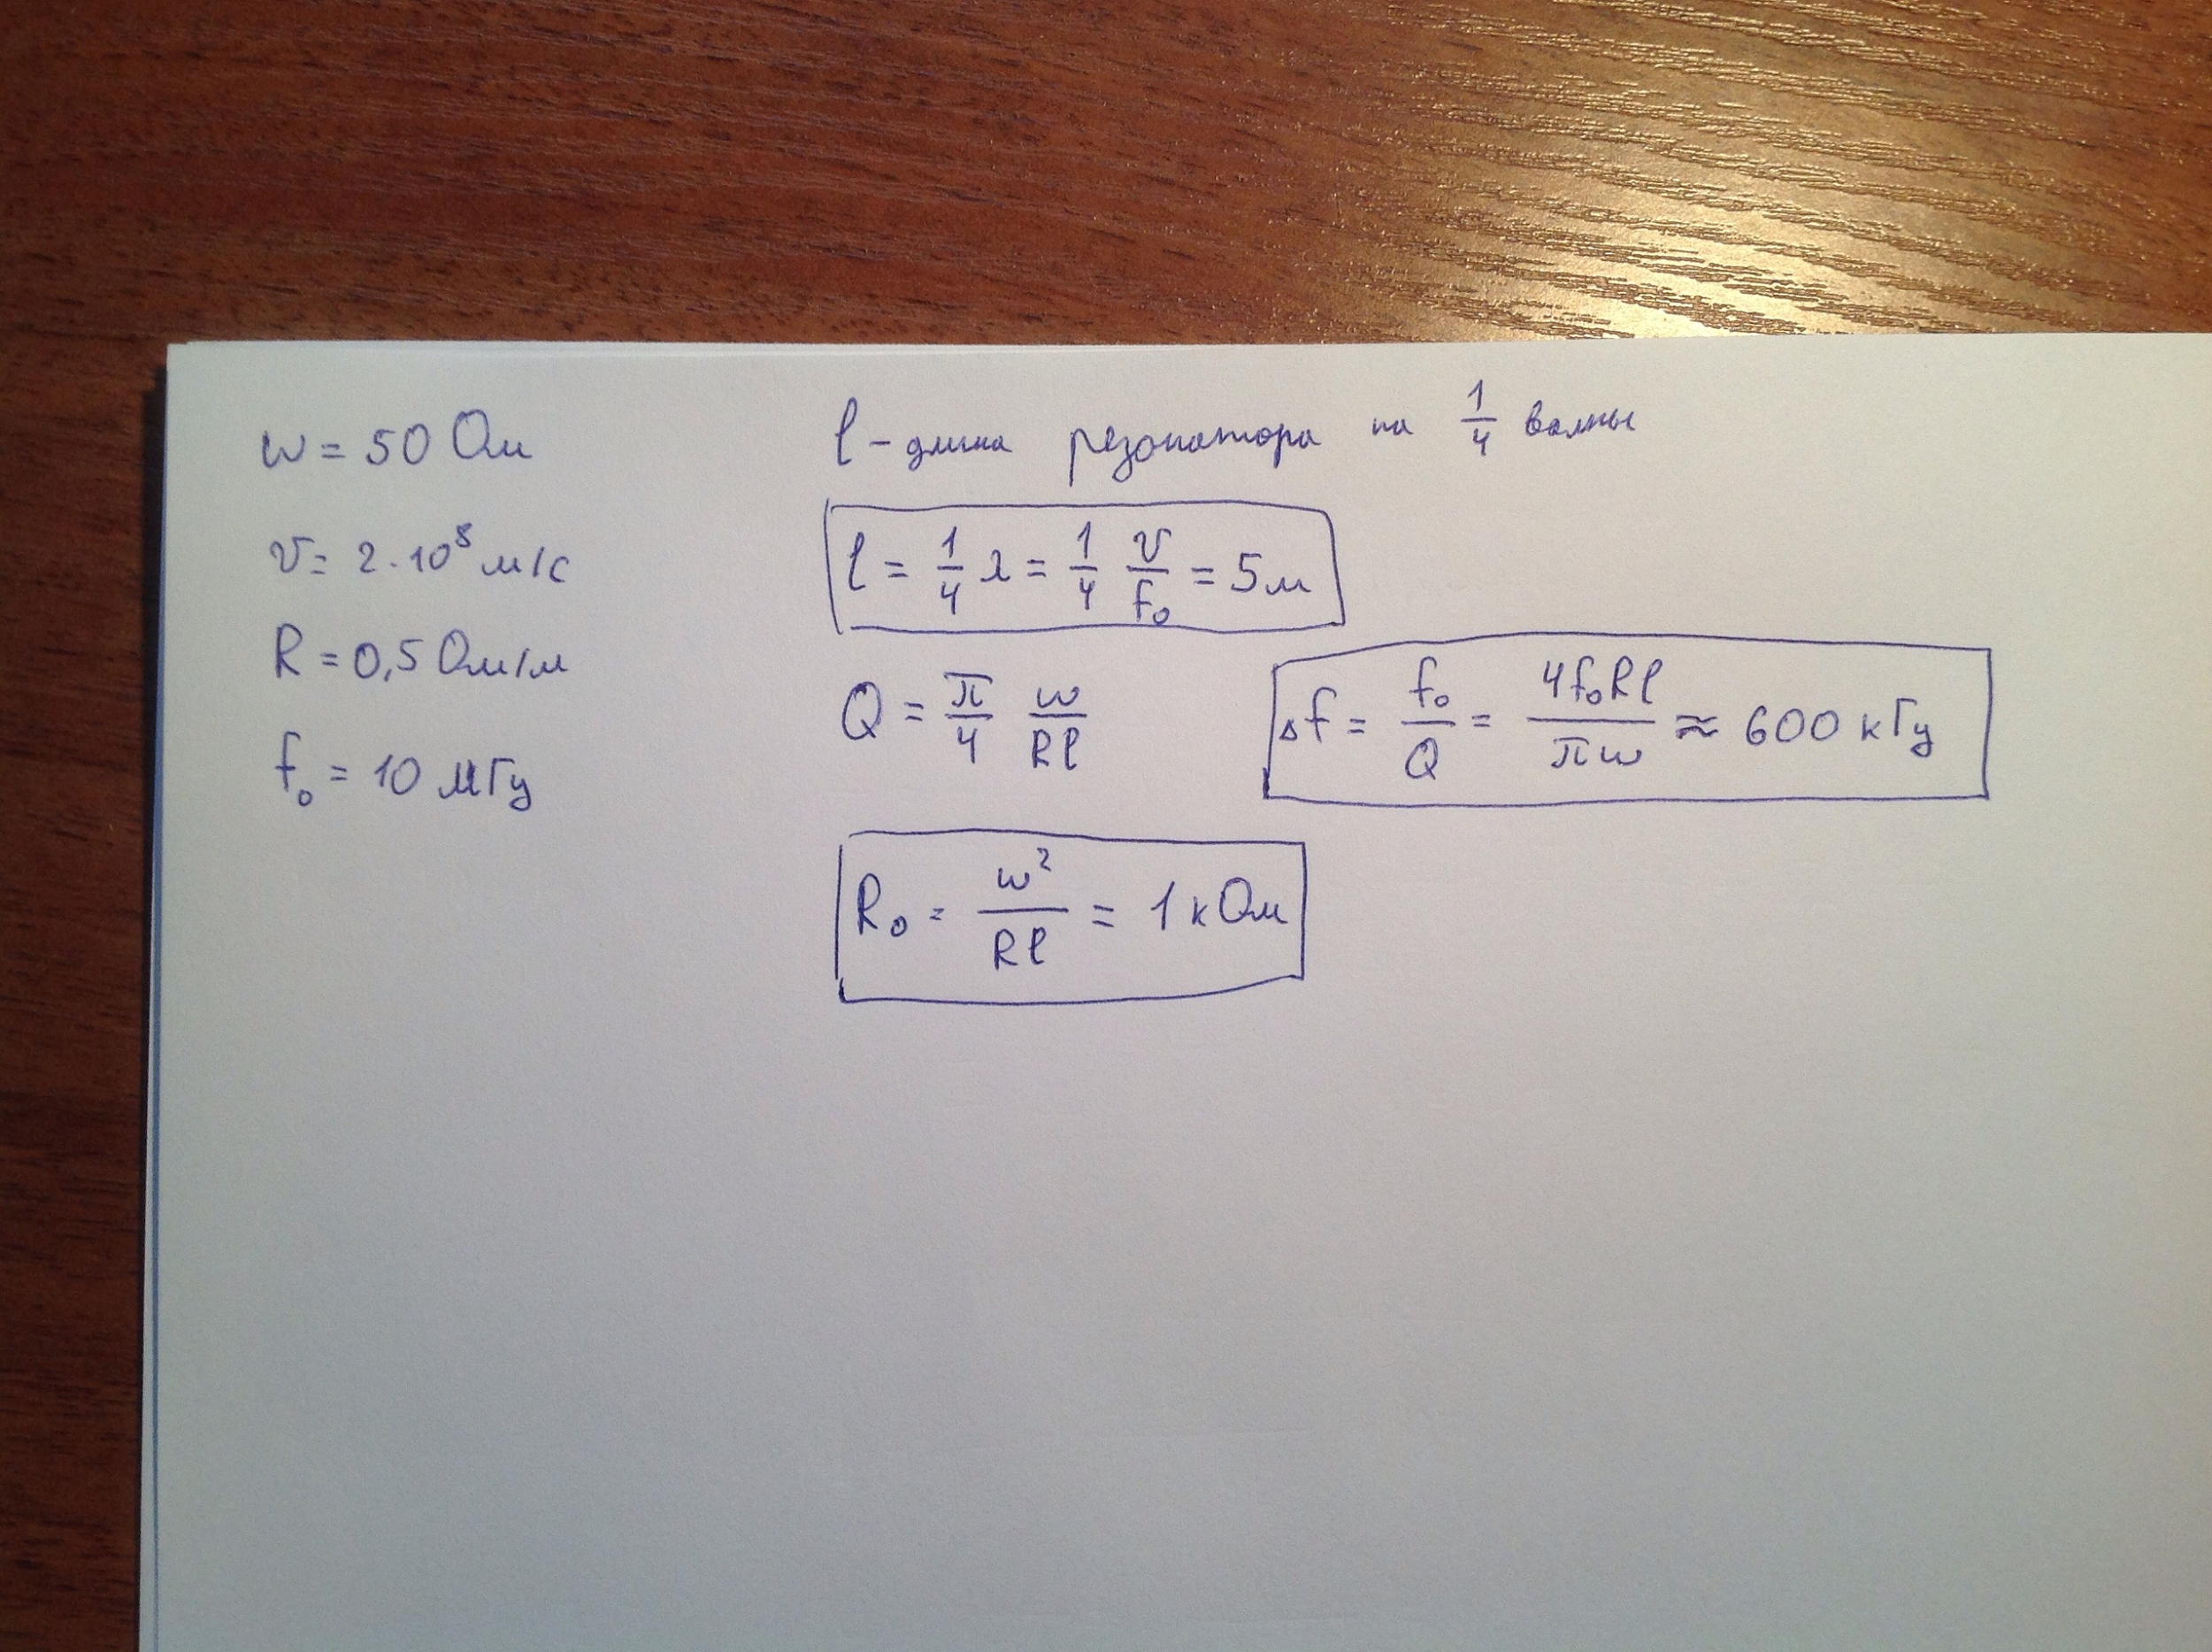 w = 50 Ом
v = 2·10⁸ м/с
R = 0,5 Ом/м
f₀ = 10 МГц
l - длина резонатора на 1/4 волны
l = 1/4 λ = 1/4 v/f₀ = 5 м
Q = π/4 w/Rl
Δf = f₀/Q = 4f₀Rl/πw ≈ 600 кГц
R₀ = w²/Rl = 1 кОм